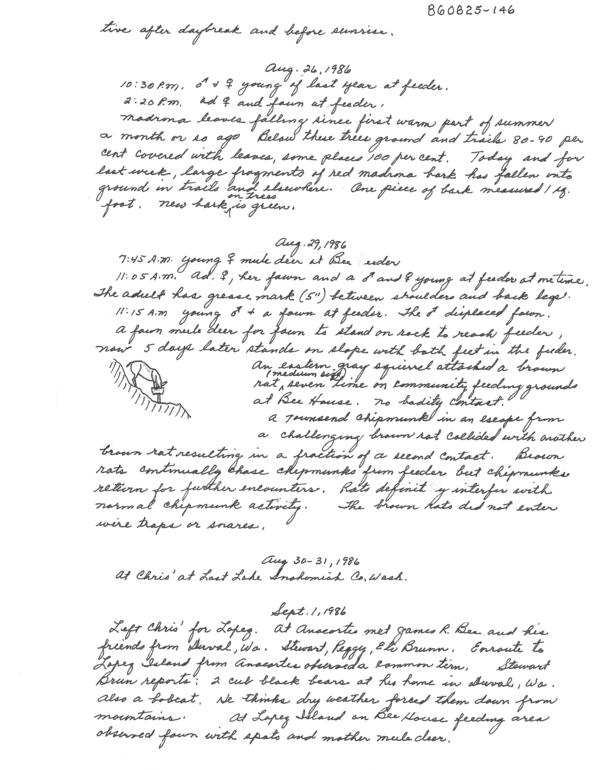 860825-146
tive after daybreak and before sunrise.
Aug. 26, 1986
10:30 P.m. ♂ + ♀ young of last year at feeder.
2:20 P.m. ad ♀ and fawn at feeder.
madrona leaves falling since first warm part of summer
a month or so ago Below these trees ground and trails 80-90 per
cent covered with leaves, some places 100 per cent. Today and for
last week, large fragments of red madrona bark has fallen onto
ground in trails and elsewhere. One piece of bark measured 1 sq.
foot. new bark on trees is green.
Aug. 29, 1986
7:45 A.m. young ♀ mule deer at Bee eeder
11:05 A.m. Ad. ♀, her fawn and a ♂ and ♀ young at feeder at one time.
The adult has grease mark (5") between shoulders and back legs.
11:15 A.m young ♂ + a fawn at feeder. The ♂ displaced fawn.
a fawn mule deer for fawn to stand on rock to reach feeder,
now 5 days later stands on slope with both feet in the feeder.
An eastern gray squirrel attached a brown
rat (medium size), seven time on community feeding grounds
at Bee House. no badity contact.
a Townsend chipmunk in an escape from
a challenging brown rat collided with another
brown rat resulting in a fraction of a second contact. Brown
rats continually chase chipmunks from feeder but chipmunks
return for further encounters. Rats definit y interfer with
normal chipmunk activity. The brown rats did not enter
wire traps or snares.
Aug 30-31, 1986
At Chris' at Lost Lake Snohomish Co, Wash.
Sept. 1, 1986
Left Chris' for Lopez. At Anacortes met James R. Bee and his
friends from Duval, Wa. Stewart, Peggy, Eli Brunn. Enroute to
Lopez Island from Anacortes observed a common tern. Stewart
Brun reports: 2 cub black bears at his home in Duval, Wa.
Also a bobcat. He thinks dry weather forced them down from
mountains. At Lopez Island on Bee House feeding area
observed fawn with spots and mother mule deer.